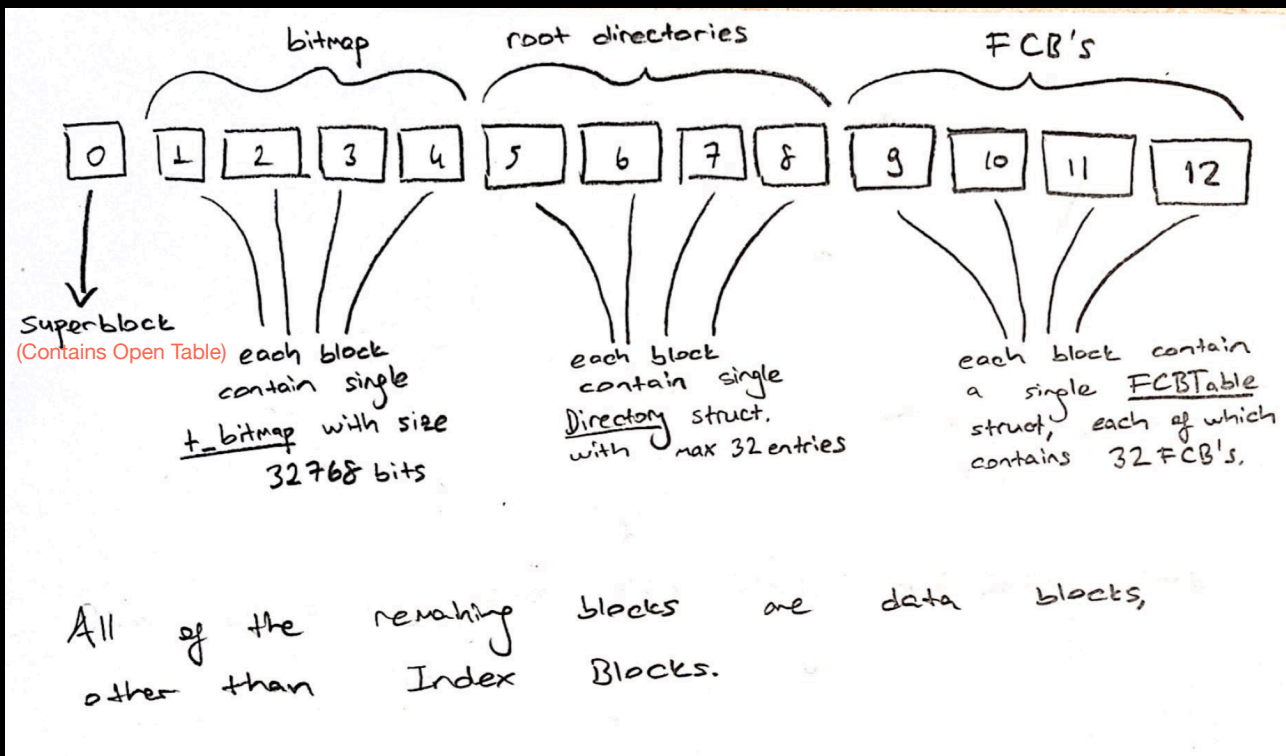 bitmap
root directories
FCB's
0
1
2
3
4
5
6
7
8
9
10
11
12
Superblock
(Contains Open Table)
each block
contain single
t_bitmap with size
32768 bits
each block
contain single
Directory struct.
with max 32 entries
each block contain
a single FCBTable
struct, each of which
contains 32 FCB's.
All of the remaining blocks are data blocks,
other than Index Blocks.